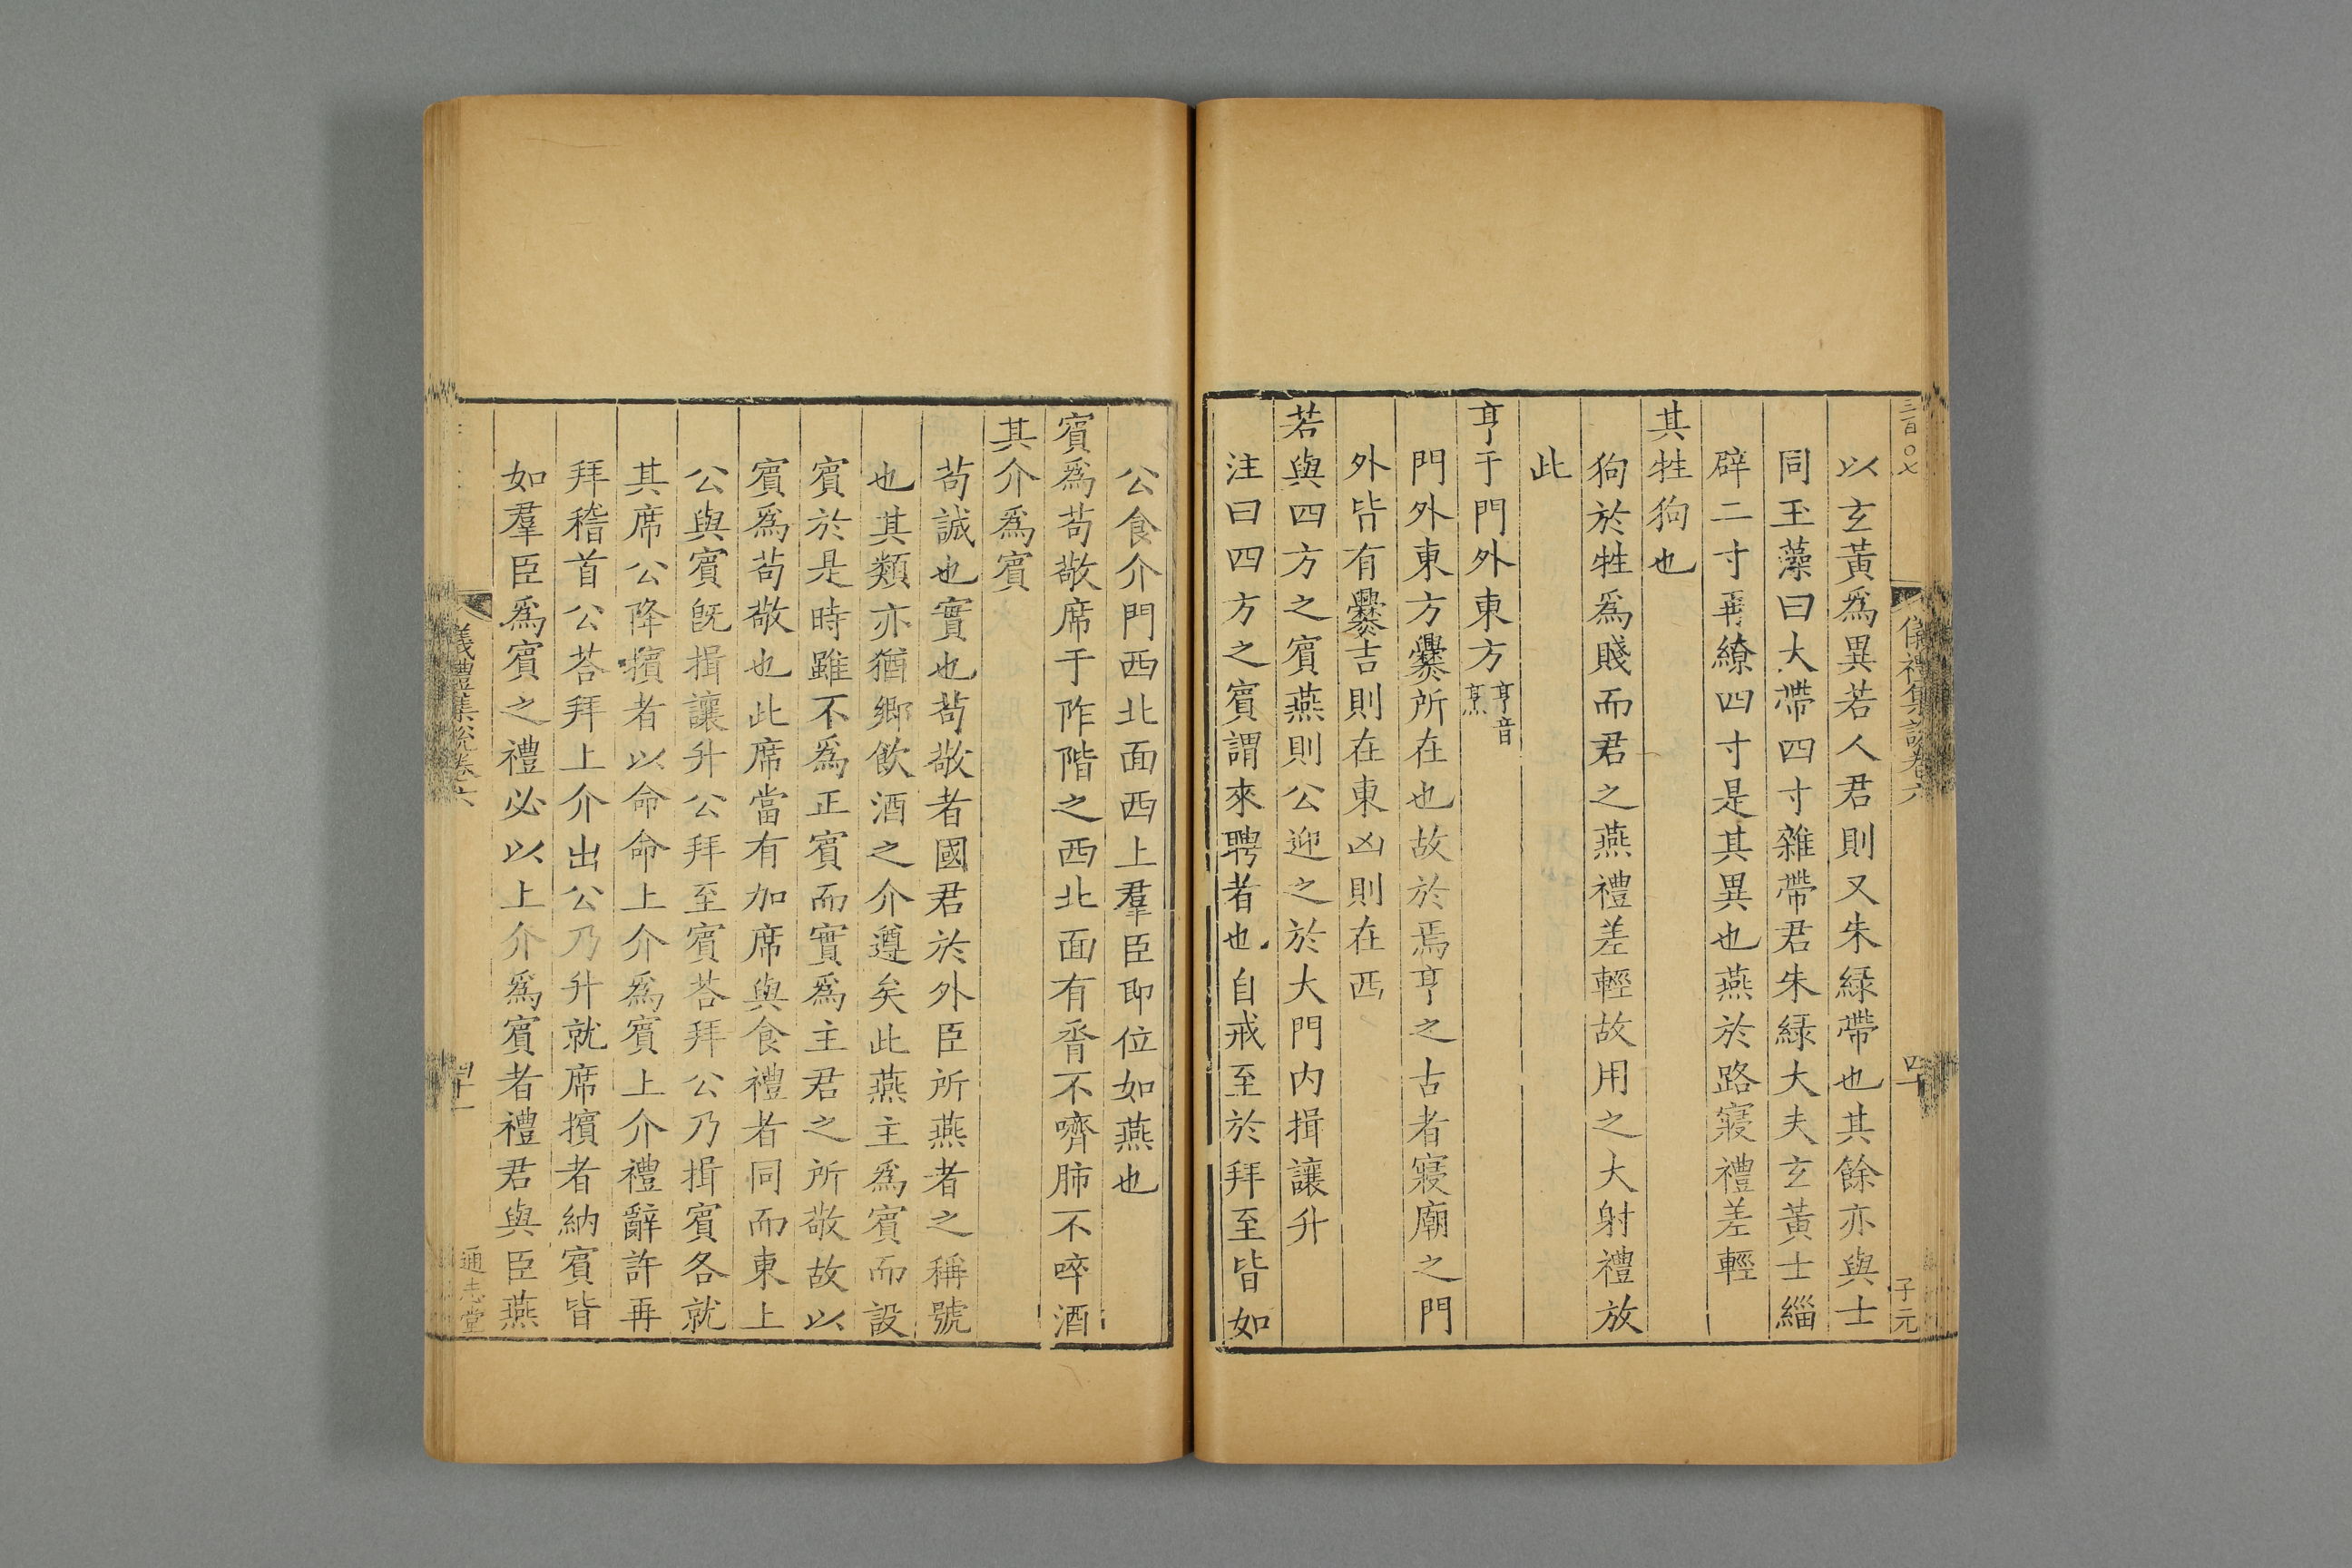 三百〇七
儀禮集說卷六
四十
子元
以玄黃爲異若人君則又朱綠帶也其餘亦與士
同玉藻曰大帶四寸雜帶君朱綠大夫玄黃士緇
辟二寸再繚四寸是其異也燕於路寢禮差輕
其牲狗也
狗於牲爲賤而君之燕禮差輕故用之大射禮放
此
亨于門外東方亨音烹
門外東方爨所在也故於焉亨之古者寢廟之門
外皆有爨吉則在東凶則在西
若與四方之賓燕則公迎之於大門内揖讓升
注曰四方之賓謂來聘者也自戒至於拜至皆如
公食介門西北面西上羣臣即位如燕也
賓爲苟敬席于阼階之西北面有脀不嚌肺不啐酒
其介爲賓
苟誠也實也苟敬者國君於外臣所燕者之稱號
也其類亦猶鄉飲酒之介遵矣此燕主爲賓而設
賓於是時雖不爲正賓而實爲主君之所敬故以
賓爲苟敬也此席當有加席與食禮者同而東上
公與賓旣揖讓升公拜至賓荅拜公乃揖賓各就
其席公降擯者以命命上介爲賓上介禮辭許再
拜稽首公荅拜上介出公乃升就席擯者納賓皆
如羣臣爲賓之禮必以上介爲賓者禮君與臣燕
儀禮集說卷六
四十一
通志堂